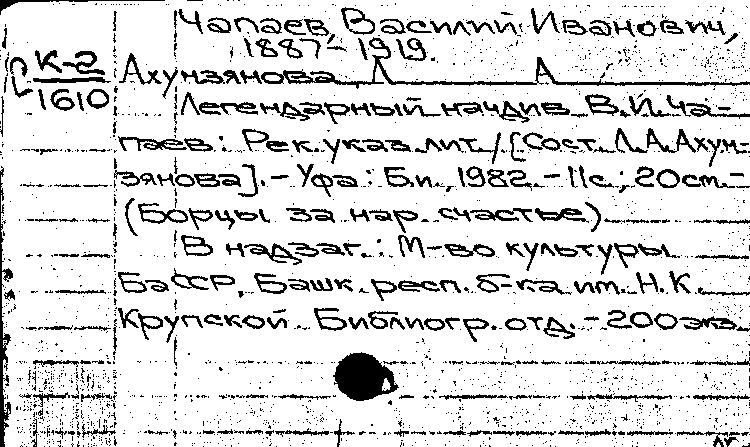 Чапаев, Василий Иванович,
1887-1919.
К-2
1610
Ахунзянова, Л А
Легендарный начдив В.И. Ча-
паев: Рек. указ. лит. / [Сост. Л.А. Ахун-
зянова]. - Уфа: Б.и., 1982. - 11с.; 20см. -
(Борцы за нар. счастье)
В надзаг.: М-во культуры
БаССР, Башк. респ. б-ка им. Н.К.
Крупской. Библиогр. отд. - 200экз.